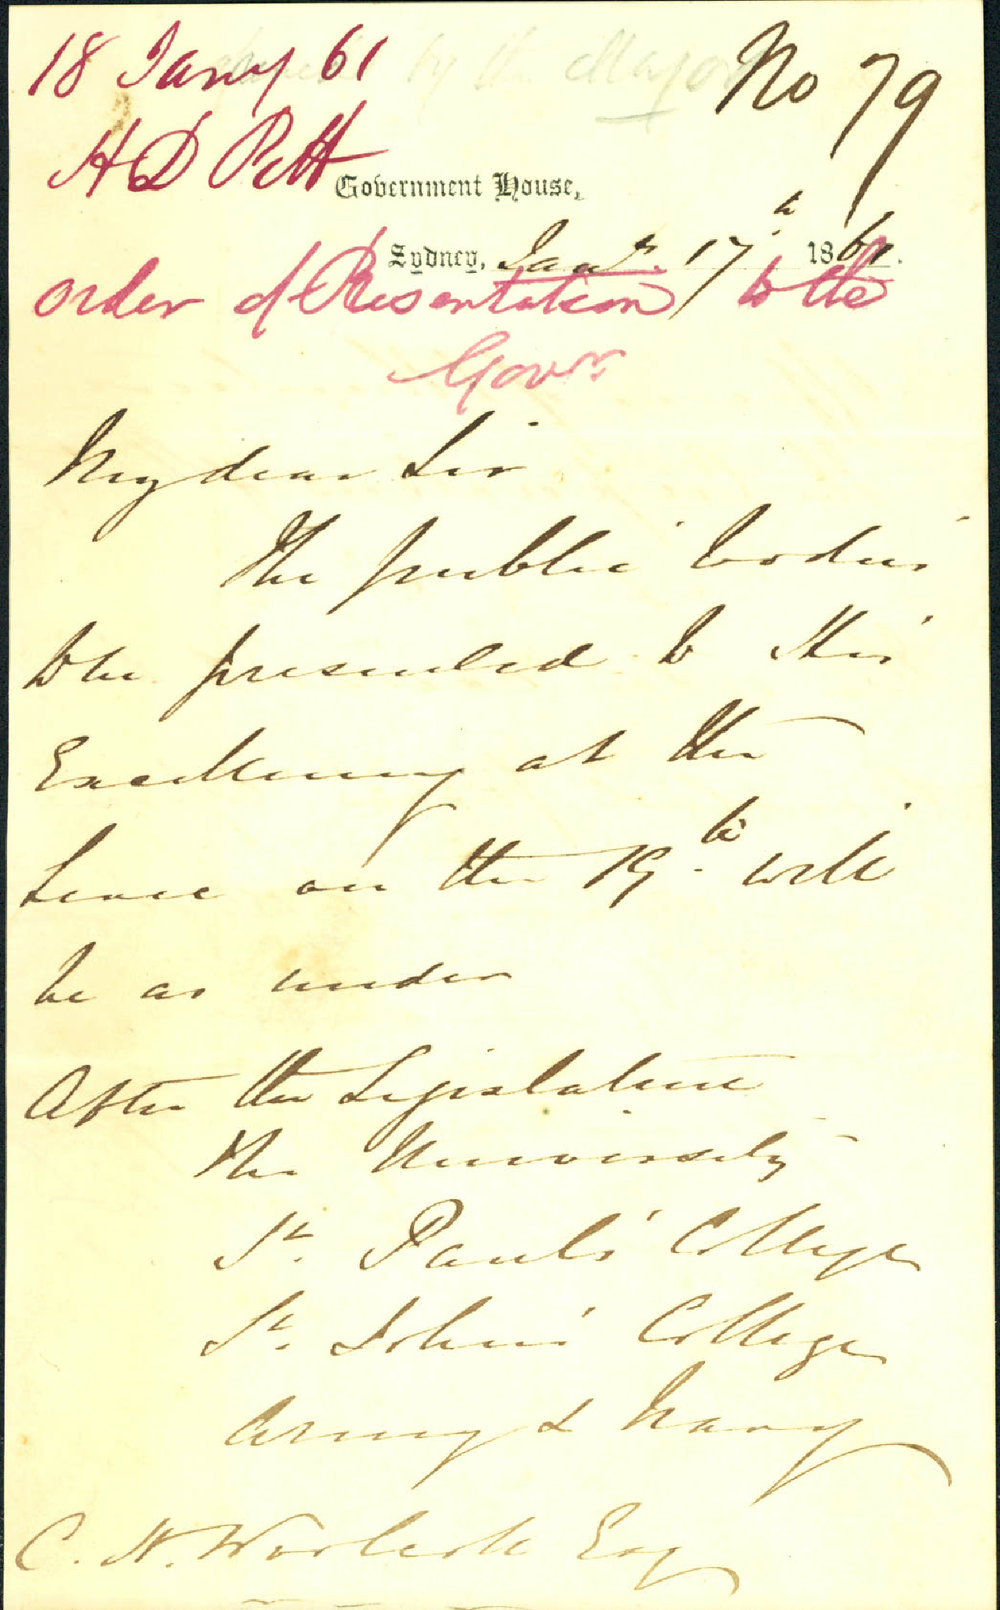 18 Jany 61
No 79
H D Pitt
Government House,
Sydney, Jany. 17th 1861.
Order of Presentation to the
Govr.
My dear Sir
The public bodies
to be presented to His
Excellency at the
Levee on the 19th will
be as under
After the Legislature
the University
St. Paul's College
St. John's College
Army & Navy
C. H. Woolcott Esq